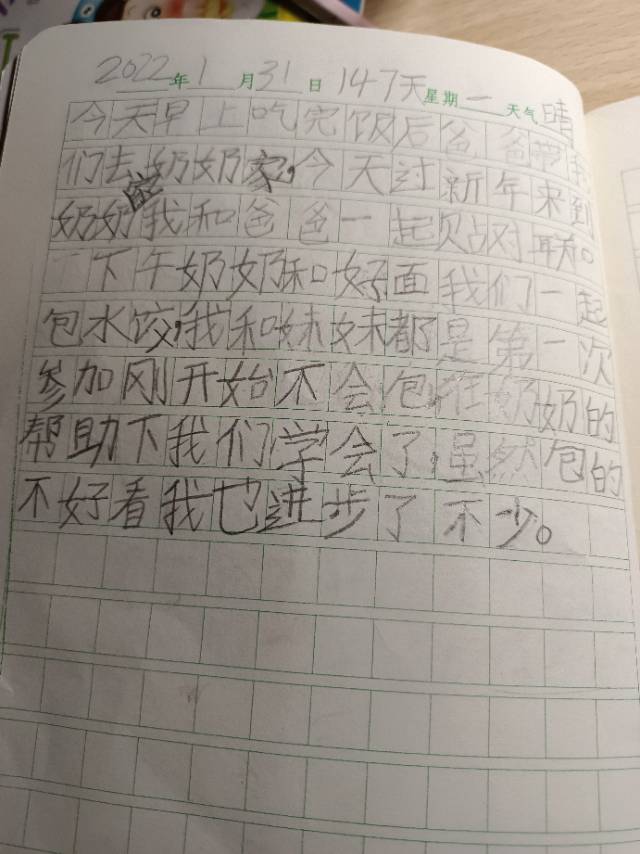 2022年1月31日147天星期一天气晴
今天早上吃完饭后爸爸带我
们去奶奶家,今天过新年来到
奶奶家我和爸爸一起贴对联。
下午奶奶和好面我们一起
包水饺,我和妹妹都是第一次
参加刚开始不会包,在奶奶的
帮助下我们学会了,虽然包的
不好看我也进步了不少。